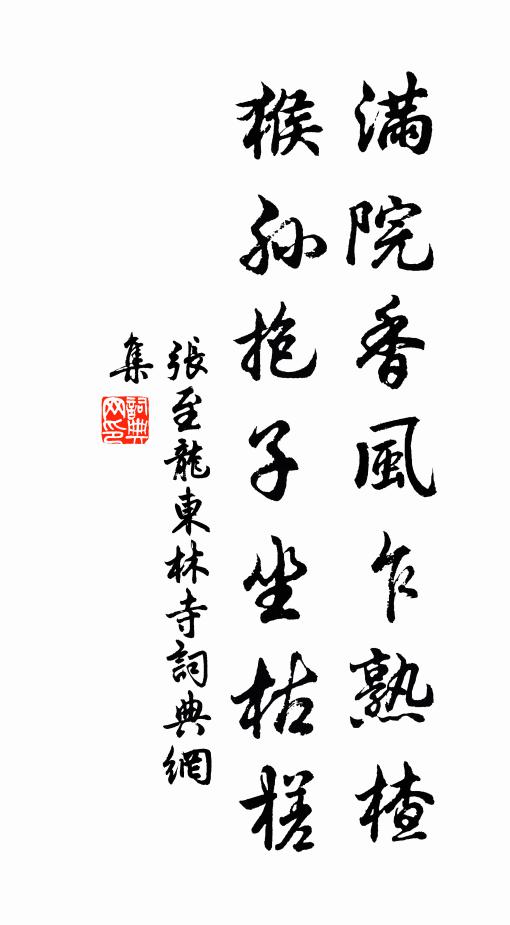 滿院香風乍熟楂
猴孙抱子坐枯槎
張至龍東林寺詞典網
集
詞典网印